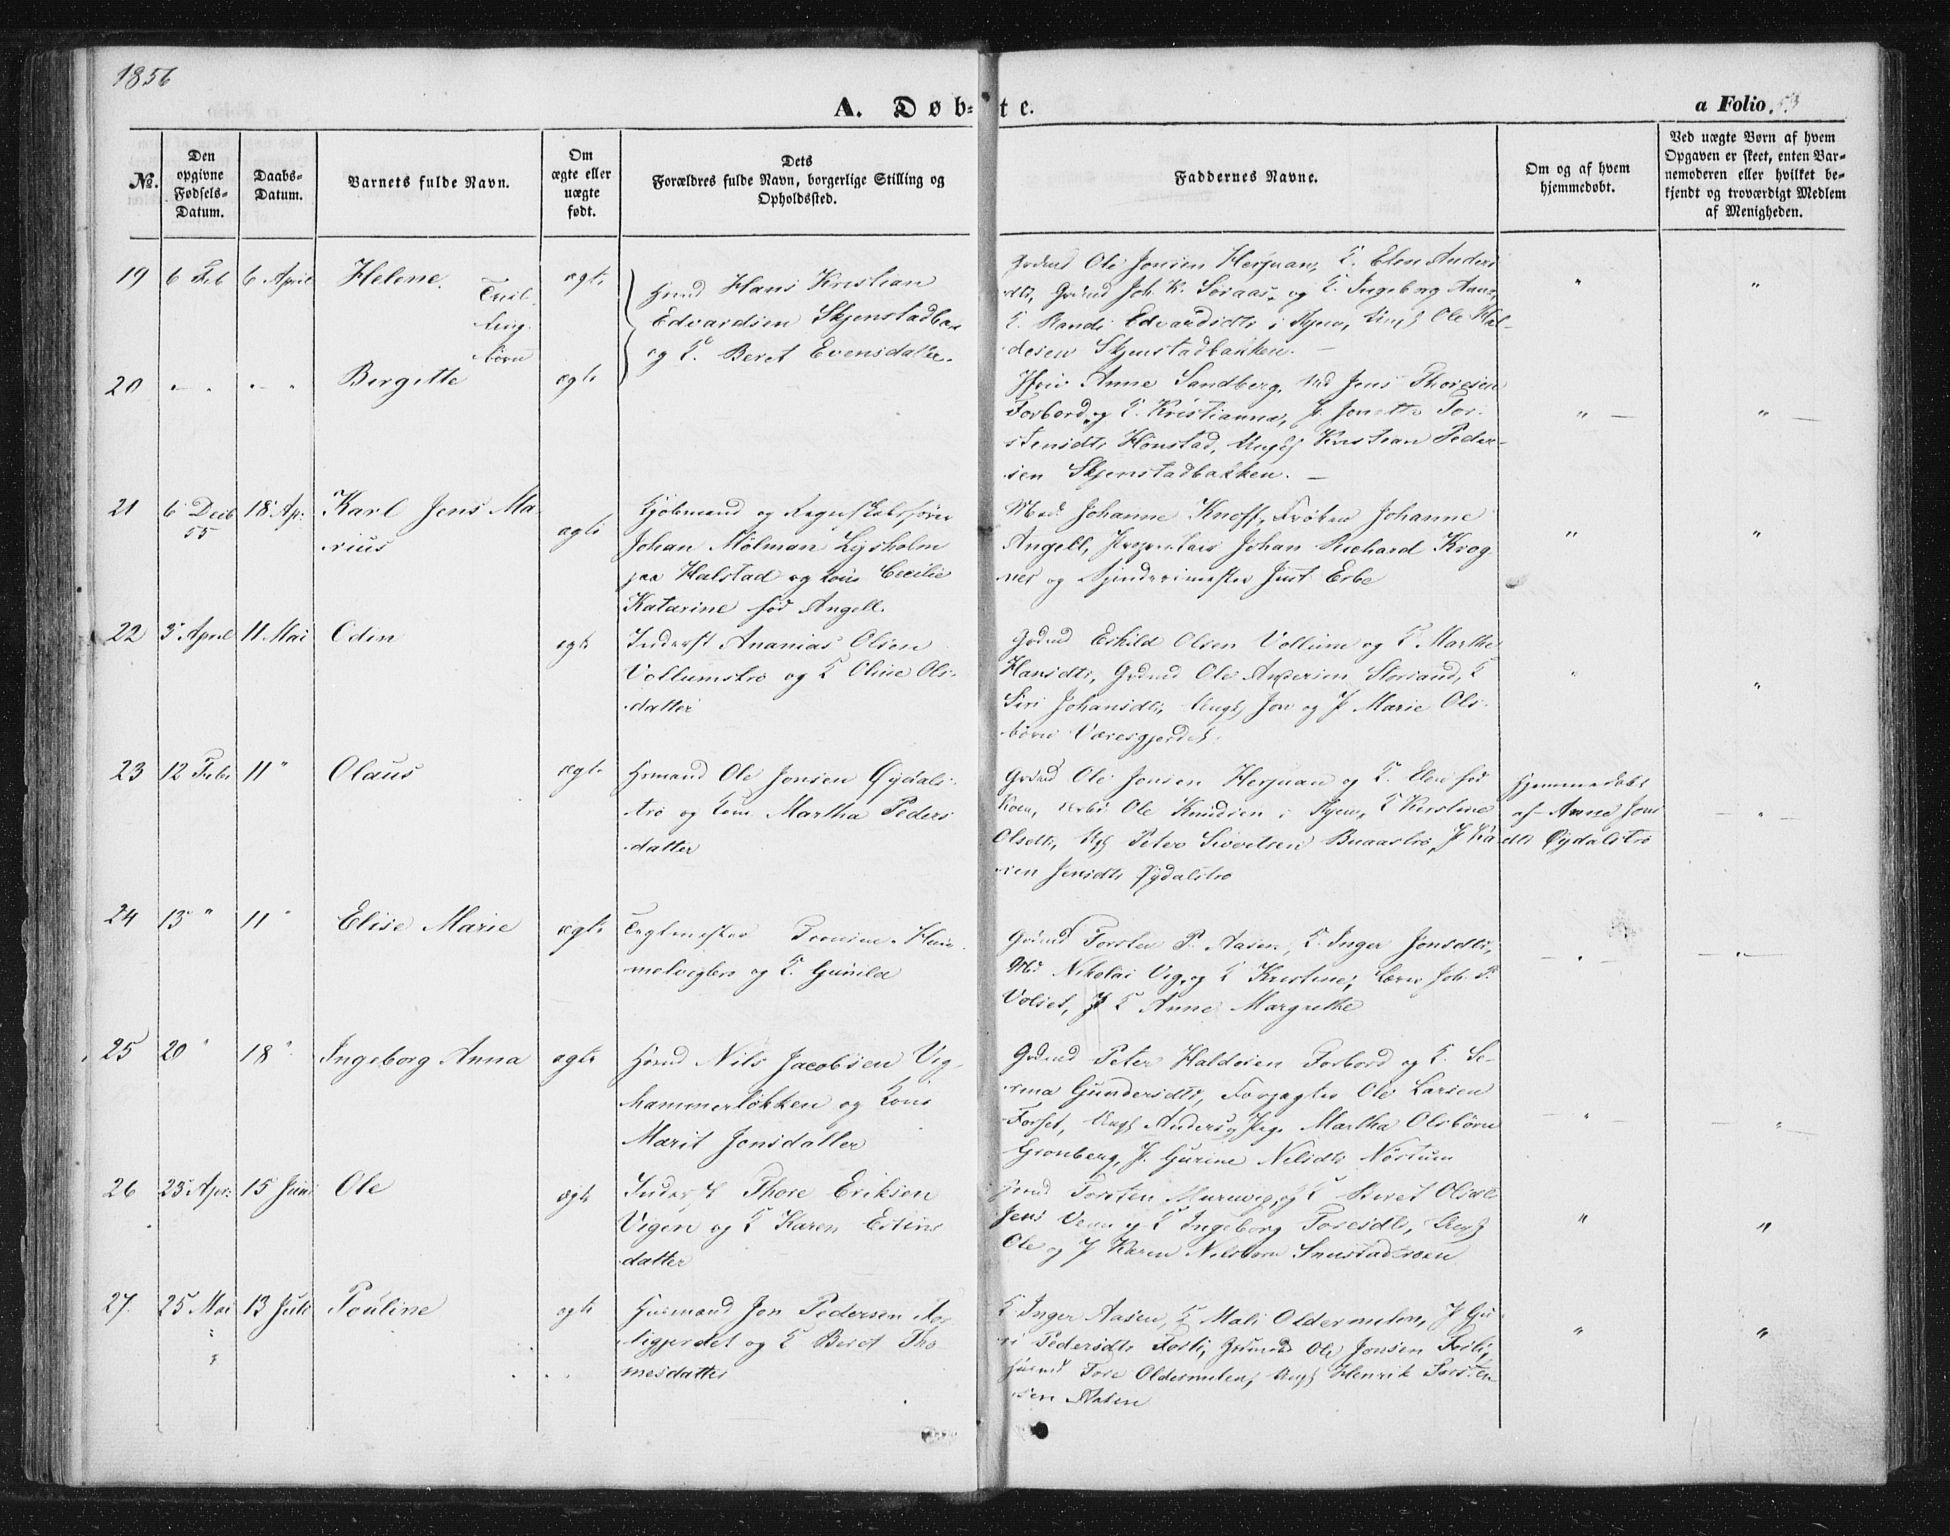 1856
A. Døb-te.
a Folio. 53
No.
Den opgivne Fødsels-Datum.
Daabs-Datum.
Barnets fulde Navn.
Om ægte eller uægte født.
Dets Forældres fulde Navn, borgerlige Stilling og Opholdssted.
Faddernes Navne.
Om og af hvem hjemmedøbt.
Ved uægte Børn af hvem Opgaven er skeet, enten Barnemoderen eller hvilket bekjendt og troværdigt Medlem af Menigheden.
19 6 Feb 6 April Helene. Tvil-ling-børn ægte
Hmd Hans Kristian
Edvardsen Skjenstadba
og K. Beret Evensdatter.
Grdmd Ole Jonsen Herjuan, K. Elen Anders
dtr, Grdmd Joh. K. Søraas, og K. Ingeborg Anne,
K. Randi Edvardsdtr i Hjem, Ungk Ole Hal-
desen Skjenstadbakken. —
20 Birgitte ægte
Anne Sandberg, Jens Thoresen
Forbord, og K. Kristianna, P. Jonetta Tor-
stensdtr Hønstad, Ungk Kristian Peder-
sen Skjenstadbakken. —
21 6 Decb 55 18 Ap. Karl Jens Ma-
rius ægte
Kjøbmand og Regnskabsfører
Johan Mølman Lysholm
paa Halstad og Kone Cecilie
Katarine fød Angell.
Mad Johanne Knoff, Frøken Johanne
Angell, Proprietær Johan Richard Krog
nes og Just Erbe
22 3 April 11 Mai Odin ægte
Inderst Ananias Olsen
Vollumstrø og K Oline Ols-
datter
Grdmd Eskild Olsen Vollum og K. Marthe
Hansdtr, Grdmd Ole Andersen Storsand, K
Siri Johansdtr, Ungk Jon og P Marie Ols-
børn Væresgjerdet.
23 12 Febr 11 " Olaus ægte
Hsmand Ole Jonsen Øydals-
trø og Kone Martha Peders
datter
Grdmd Ole Jonsen Herjuan og K. Elen fød
Koen, Ole Knudsen i Hjem, K Kirstine
Olsdtr, Ungk Peter Sivertsen Buaastrø, P Ka
ren Jensdtr Øydalstrø
Hjemmedøbt
af Anne Jons
dtr Øydalstrø
24 13 " 11 " Elise Marie ægte
Teglmester Ham-
melvigbro og K. Gunild
Grdmd Torsten P. Aasen, K. Inger Jonsdtr,
Nikolai Vig, og K Kristine, Joh. P.
Volset, K Anne Margrethe
25 20 " 18 " Ingeborg Anna ægte
Hsmd Nils Jacobsen Vig-
hammerløkken og Kone
Marit Jonsdatter
Grdmd Peter Haldosen Forbord og K. Se-
rina Gundersdtr, Forpagter Ole Larsen
Forset, Ungk Anders og Pige Martha Olsbørn
Gronberg, P. Gurine Nelsdtr Nøstum
26 23 Apr: 15 Juni Ole ægte
Inderst Thore Eriksen
Vigen og K Karen Estens
datter
Hsmd Torsten Muruvig, og K Beret Olsdtr
Jens og K Ingeborg Toresdtr, Ungk
Ole og P Karen Nelsbørn
27. 25 Mai 13 Juli Pauline ægte
Husmand Jon Pedersen
ligjerdet og K Beret Tho
mesdatter
K Inger Aasen, K Mali Oldermelen, P Gu-
ri Pedersdtr Forli, Grdmand Ole Jonsen Forli,
Husmd Tore Oldermelen, Ungk Henrik Torsten
sen Aasen